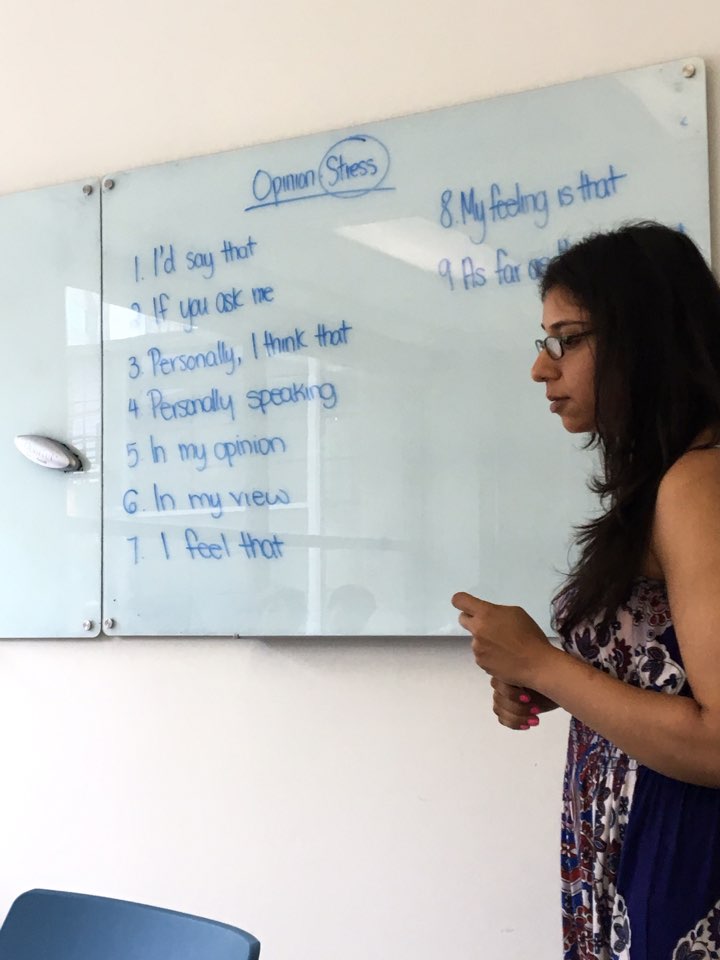 Opinion Stress
1. I'd say that
2 If you ask me
3. Personally, I think that
4. Personally speaking
5. In my opinion
6. In my view
7. I feel that
8. My feeling is that
9 As far as